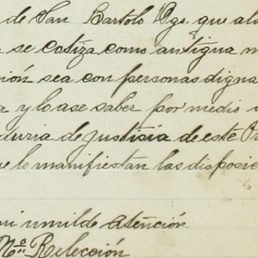 de San Bartolo Ogs. que al
se cotiza como antigua m
ión sea con personas digna
a y lo ase saber por medio
duria de justicia de este P
ue lo manifiestan las disposic
mi umilde Atención
No. Relección